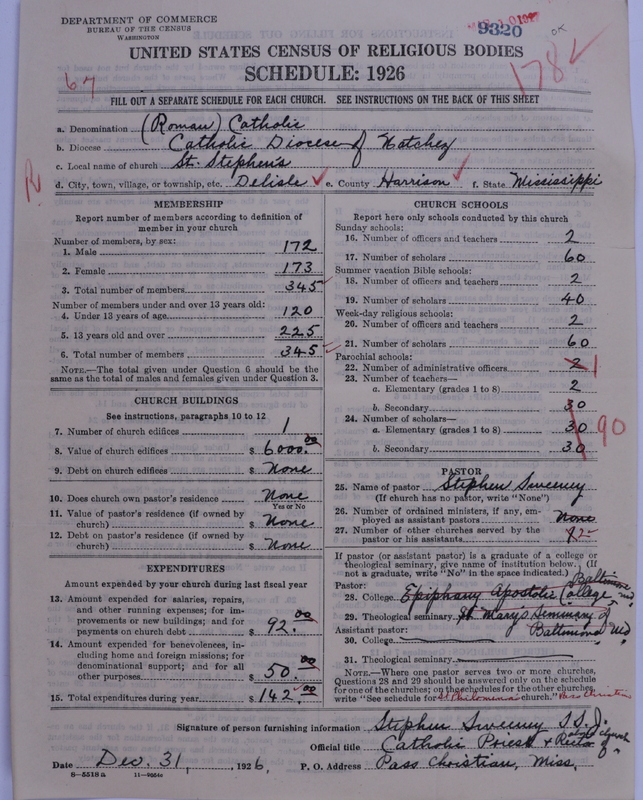 DEPARTMENT OF COMMERCE
BUREAU OF THE CENSUS
WASHINGTON
9320
OK
UNITED STATES CENSUS OF RELIGIOUS BODIES
SCHEDULE: 1926
67
178
FILL OUT A SEPARATE SCHEDULE FOR EACH CHURCH. SEE INSTRUCTIONS ON THE BACK OF THIS SHEET
a. Denomination (Roman) Catholic
b. Diocese Catholic Diocese of Natchez
c. Local name of church St. Stephen's
d. City, town, village, or township, etc. Delisle e. County Harrison f. State Mississippi
R
MEMBERSHIP
Report number of members according to definition of
member in your church
Number of members, by sex:
1. Male 172
2. Female 173
3. Total number of members 345
Number of members under and over 13 years old:
4. Under 13 years of age 120
5. 13 years old and over 225
6. Total number of members 345
NOTE.—The total given under Question 6 should be the
same as the total of males and females given under Question 3.
CHURCH BUILDINGS
See instructions, paragraphs 10 to 12
7. Number of church edifices 1
8. Value of church edifices $ 6000.00
9. Debt on church edifices $ None
10. Does church own pastor's residence None
Yes or No
11. Value of pastor's residence (if owned by
church) $ None
12. Debt on pastor's residence (if owned by
church) $ None
EXPENDITURES
Amount expended by your church during last fiscal year
13. Amount expended for salaries, repairs,
and other running expenses; for im-
provements or new buildings; and for
payments on church debt $ 92.00
14. Amount expended for benevolences, in-
cluding home and foreign missions; for
denominational support; and for all
other purposes $ 50.00
15. Total expenditures during year $ 142.00
CHURCH SCHOOLS
Report here only schools conducted by this church
Sunday schools:
16. Number of officers and teachers 2
17. Number of scholars 60
Summer vacation Bible schools:
18. Number of officers and teachers 2
19. Number of scholars 40
Week-day religious schools:
20. Number of officers and teachers 2
21. Number of scholars 60
Parochial schools:
22. Number of administrative officers 2 1
23. Number of teachers—
a. Elementary (grades 1 to 8) 2
b. Secondary 30
24. Number of scholars—
a. Elementary (grades 1 to 8) 30 90
b. Secondary 30
PASTOR
25. Name of pastor Stephen Sweeney
(If church has no pastor, write "None")
26. Number of ordained ministers, if any, em-
ployed as assistant pastors None
27. Number of other churches served by the
pastor or his assistants 2
If pastor (or assistant pastor) is a graduate of a college or
theological seminary, give name of institution below. (If
not a graduate, write "No" in the space indicated.)
Pastor: Baltimore
28. College Epiphany Apostolic College, Md.
29. Theological seminary St Mary's Seminary of
Assistant pastor: Baltimore Md.
30. College
31. Theological seminary
NOTE.—Where one pastor serves two or more churches,
Questions 28 and 29 should be answered only on the schedule
for one of the churches; on the schedules for the other churches
write "See schedule for St Philomena church." Pass Christian
Signature of person furnishing information Stephen Sweeney S.S.J.
Official title Catholic Priest & Rector of church
Date Dec. 31, 1926. P. O. Address Pass Christian, Miss.
8—5518a 11—9054c